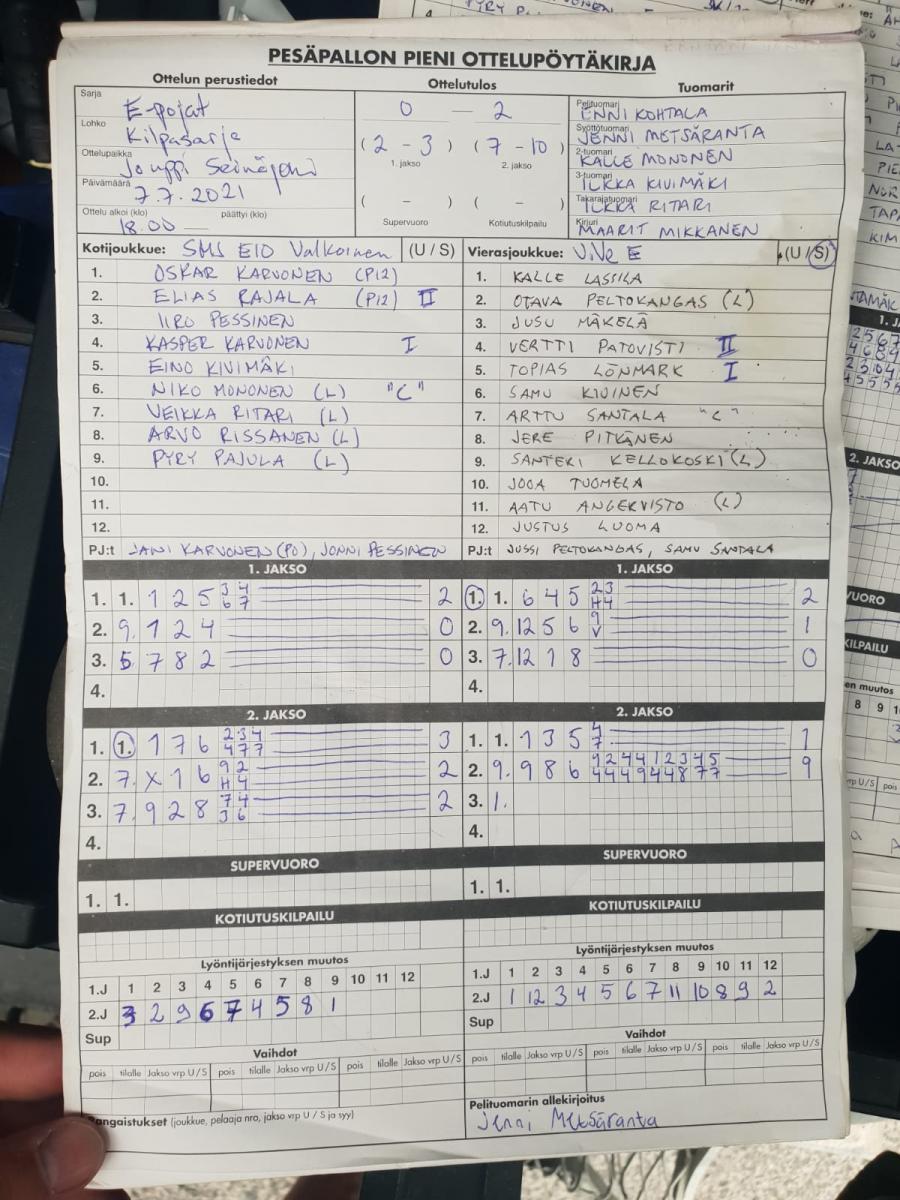 PESÄPALLON PIENI OTTELUPÖYTÄKIRJA
Ottelun perustiedot
Ottelutulos
Tuomarit
Sarja E-pojat
Lohko Kilpasarja
Ottelupaikka Jouppi Seinäjoki
Päivämäärä 7.7.2021
Ottelu alkoi (klo) 18.00 päättyi (klo)
0 — 2
( 2 - 3 ) ( 7 - 10 )
1. jakso 2. jakso
( - ) ( - )
Supervuoro Kotiutuskilpailu
Pelituomari ENNI KOHTALA
Syöttötuomari JENNI METSÄRANTA
2-tuomari KALLE MONONEN
3-tuomari ILKKA KIVIMÄKI
Takarajatuomari ILKKA RITARI
Kirjuri MAARIT MIKKANEN
Kotijoukkue: SMS E10 Valkoinen (U / S)
1. OSKAR KARVONEN (P12)
2. ELIAS RAJALA (P12) II
3. IIRO PESSINEN
4. KASPER KARVONEN I
5. EINO KIVIMÄKI
6. NIKO MONONEN (L) "C"
7. VEIKKA RITARI (L)
8. ARVO RISSANEN (L)
9. PYRY PAJULA (L)
10.
11.
12.
PJ:t JANI KARVONEN (PO), JONNI PESSINEN
Vierasjoukkue: ViVe E (U / S)
1. KALLE LASSILA
2. OTAVA PELTOKANGAS (L)
3. JUSU MÄKELÄ
4. VERTTI PATOVISTI II
5. TOPIAS LÖNMARK I
6. SAMU KIVINEN
7. ARTTU SANTALA "C"
8. JERE PITKÄNEN
9. SANTERI KELLOKOSKI (L)
10. JOOA TUOMELA
11. AATU ANGERVISTO (L)
12. JUSTUS LUOMA
PJ:t JUSSI PELTOKANGAS, SAMU SANTALA
1. JAKSO
1. 1. 1 2 5 3 4 2
6 7
2. 9. 1 2 4 0
3. 5. 7 8 2 0
4.
1. JAKSO
1. 1. 6 4 5 2 3 2
H 4
2. 9. 12 5 6 9 1
V
3. 7. 12 1 8 0
4.
2. JAKSO
1. 1. 1 7 6 2 3 4 3
4 7 7
2. 7. X 1 6 9 2 2
H 4
3. 7. 9 2 8 7 4 2
3 6
4.
2. JAKSO
1. 1. 1 3 5 4 1
7
2. 9. 9 8 6 9 2 4 4 1 2 3 4 5 9
4 4 4 9 4 4 8 7 7
3. 1.
4.
SUPERVUORO
1. 1.
SUPERVUORO
1. 1.
KOTIUTUSKILPAILU
KOTIUTUSKILPAILU
Lyöntijärjestyksen muutos
1.J 1 2 3 4 5 6 7 8 9 10 11 12
2.J 3 2 9 6 7 4 5 8 1
Sup
Lyöntijärjestyksen muutos
1.J 1 2 3 4 5 6 7 8 9 10 11 12
2.J 1 12 3 4 5 6 7 11 10 8 9 2
Sup
Vaihdot
pois tilalle Jakso vrp U/S pois tilalle Jakso vrp U/S pois tilalle Jakso vrp U/S
Vaihdot
pois tilalle Jakso vrp U/S pois tilalle Jakso vrp U/S pois tilalle Jakso vrp U/S
Rangaistukset (joukkue, pelaaja nro, jakso vrp U / S ja syy)
Pelituomarin allekirjoitus
Jenni Metsäranta